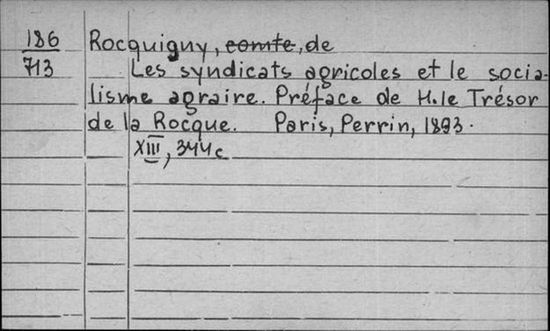 186
713
Rocquigny, comte, de
Les syndicats agricoles et le socia-
lisme agraire. Préface de H. le Trésor
de la Rocque. Paris, Perrin, 1893.
XIII, 344 c